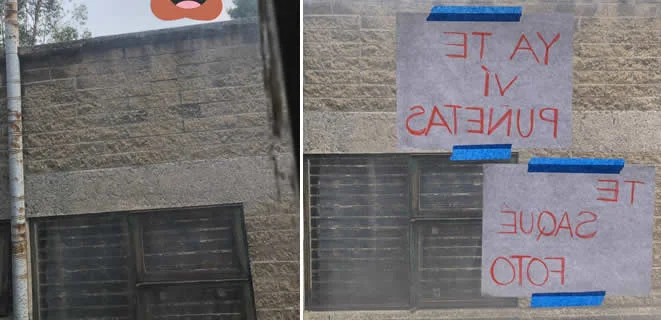 YA TE
VÍ
PUÑETAS
TE
SAQUÉ
FOTO